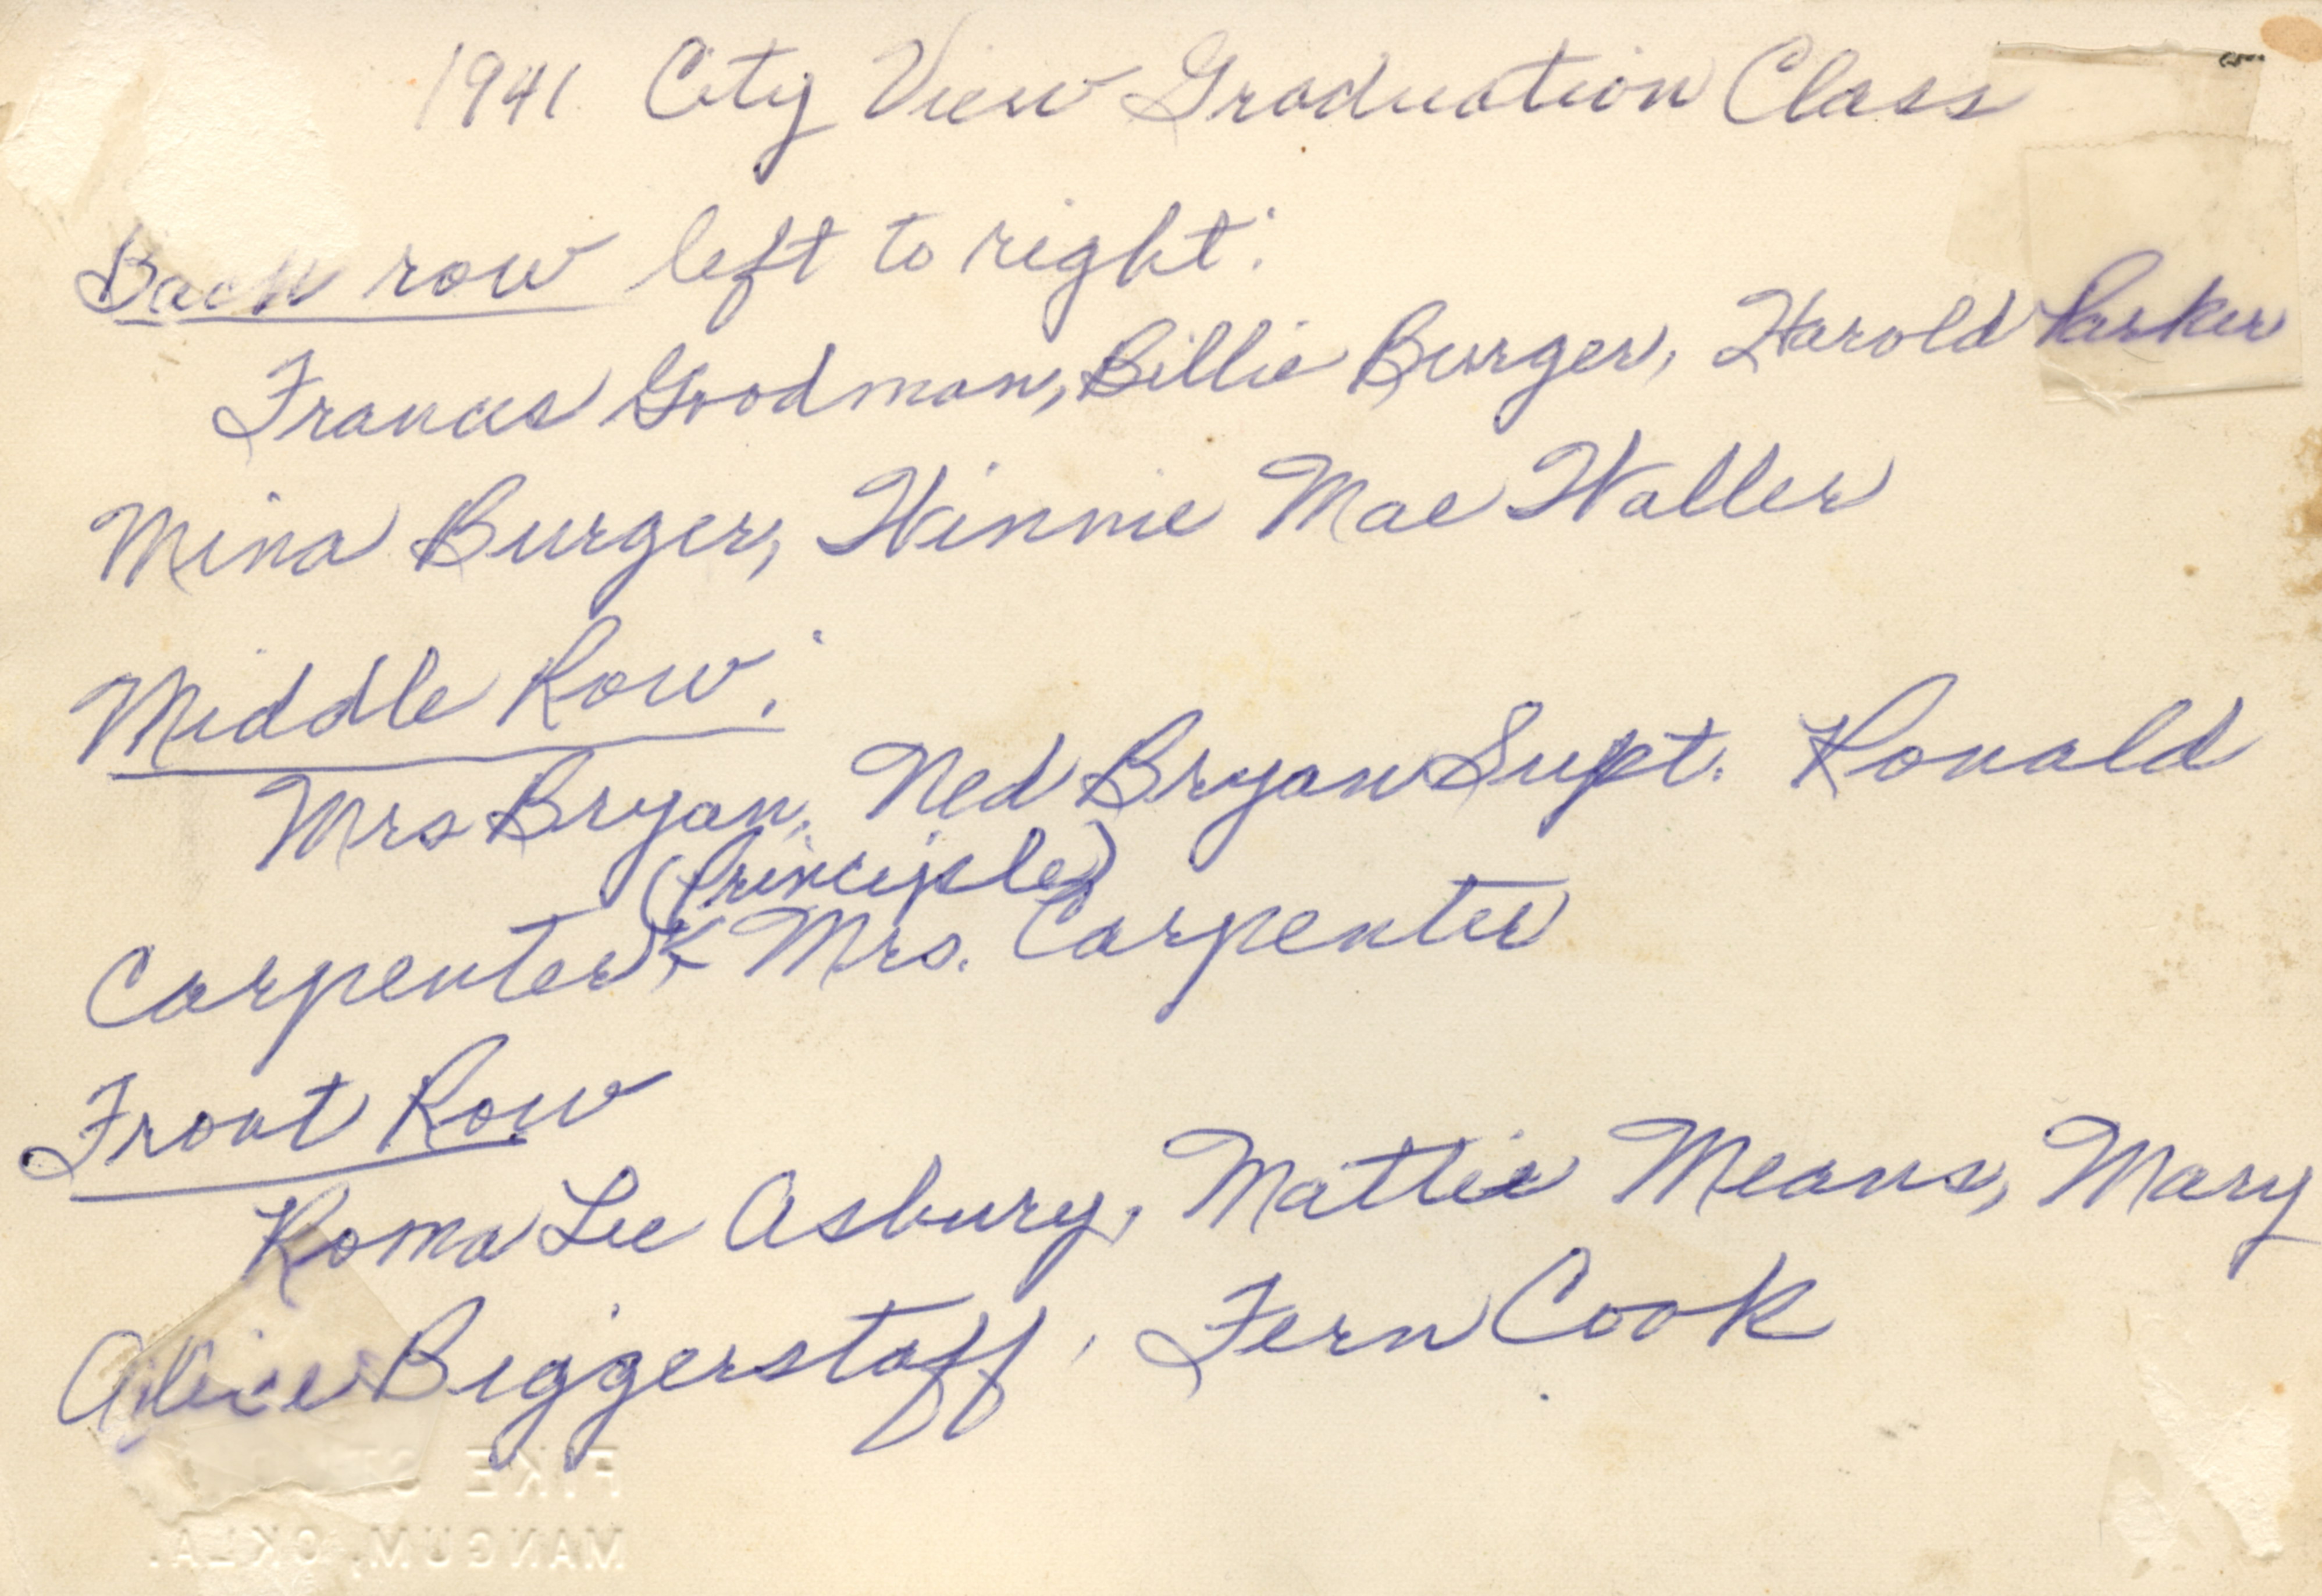 1941 City View Graduation Class
Back row left to right:
Francis Goodman, Billie Burger, Harold Parker
Mina Burger, Winnie Mae Waller
Middle Row:
Mrs Bryan, Ned Bryan Supt. Ronald
(Principle)
Carpenter & Mrs. Carpenter
Front Row
Roma Lee Asbury, Mattie Means, Mary
Alice Biggerstaff, Fern Cook
PIKE
MANGUM, OKLA.